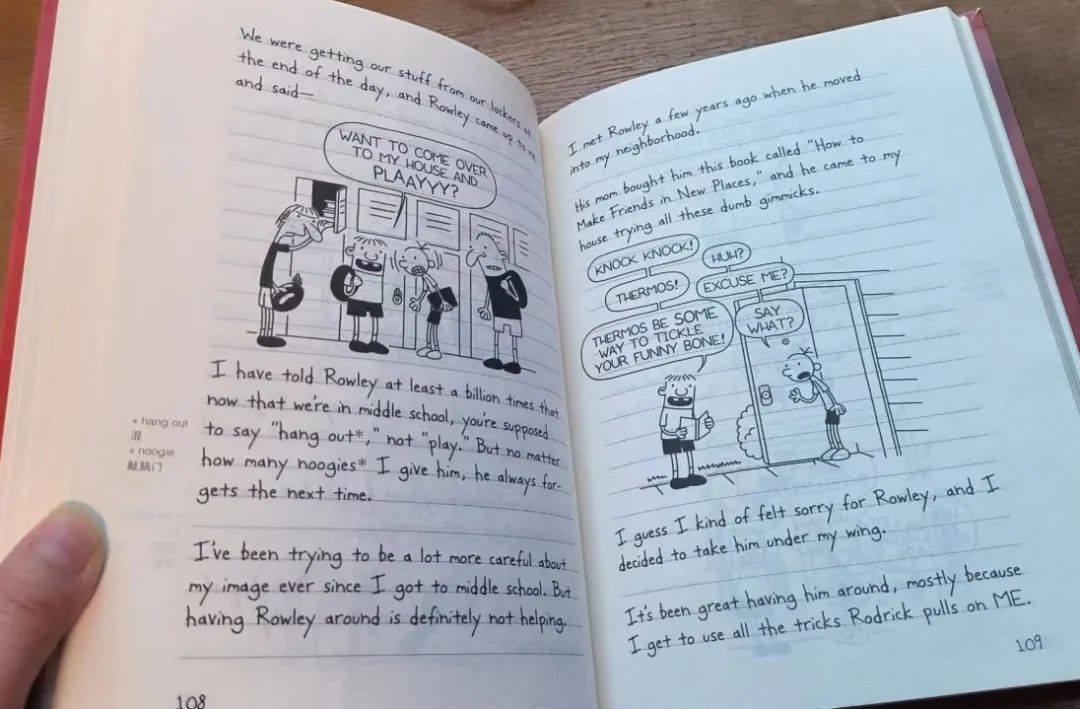 We were getting our stuff from our lockers at
the end of the day, and Rowley came up to me
and said—
WANT TO COME OVER
TO MY HOUSE AND
PLAAYYY?
I have told Rowley at least a billion times that
now that we're in middle school, you're supposed
to say "hang out*," not "play." But no matter
how many noogies* I give him, he always for-
gets the next time.
* hang out
混
* noogie
敲脑门
I've been trying to be a lot more careful about
my image ever since I got to middle school. But
having Rowley around is definitely not helping.
108
I met Rowley a few years ago when he moved
into my neighborhood.
His mom bought him this book called "How to
Make Friends in New Places," and he came to my
house trying all these dumb gimmicks.
KNOCK KNOCK!
HUH?
THERMOS!
EXCUSE ME?
THERMOS BE SOME
WAY TO TICKLE
YOUR FUNNY BONE!
SAY
WHAT?
I guess I kind of felt sorry for Rowley, and I
decided to take him under my wing.
It's been great having him around, mostly because
I get to use all the tricks Rodrick pulls on ME.
109